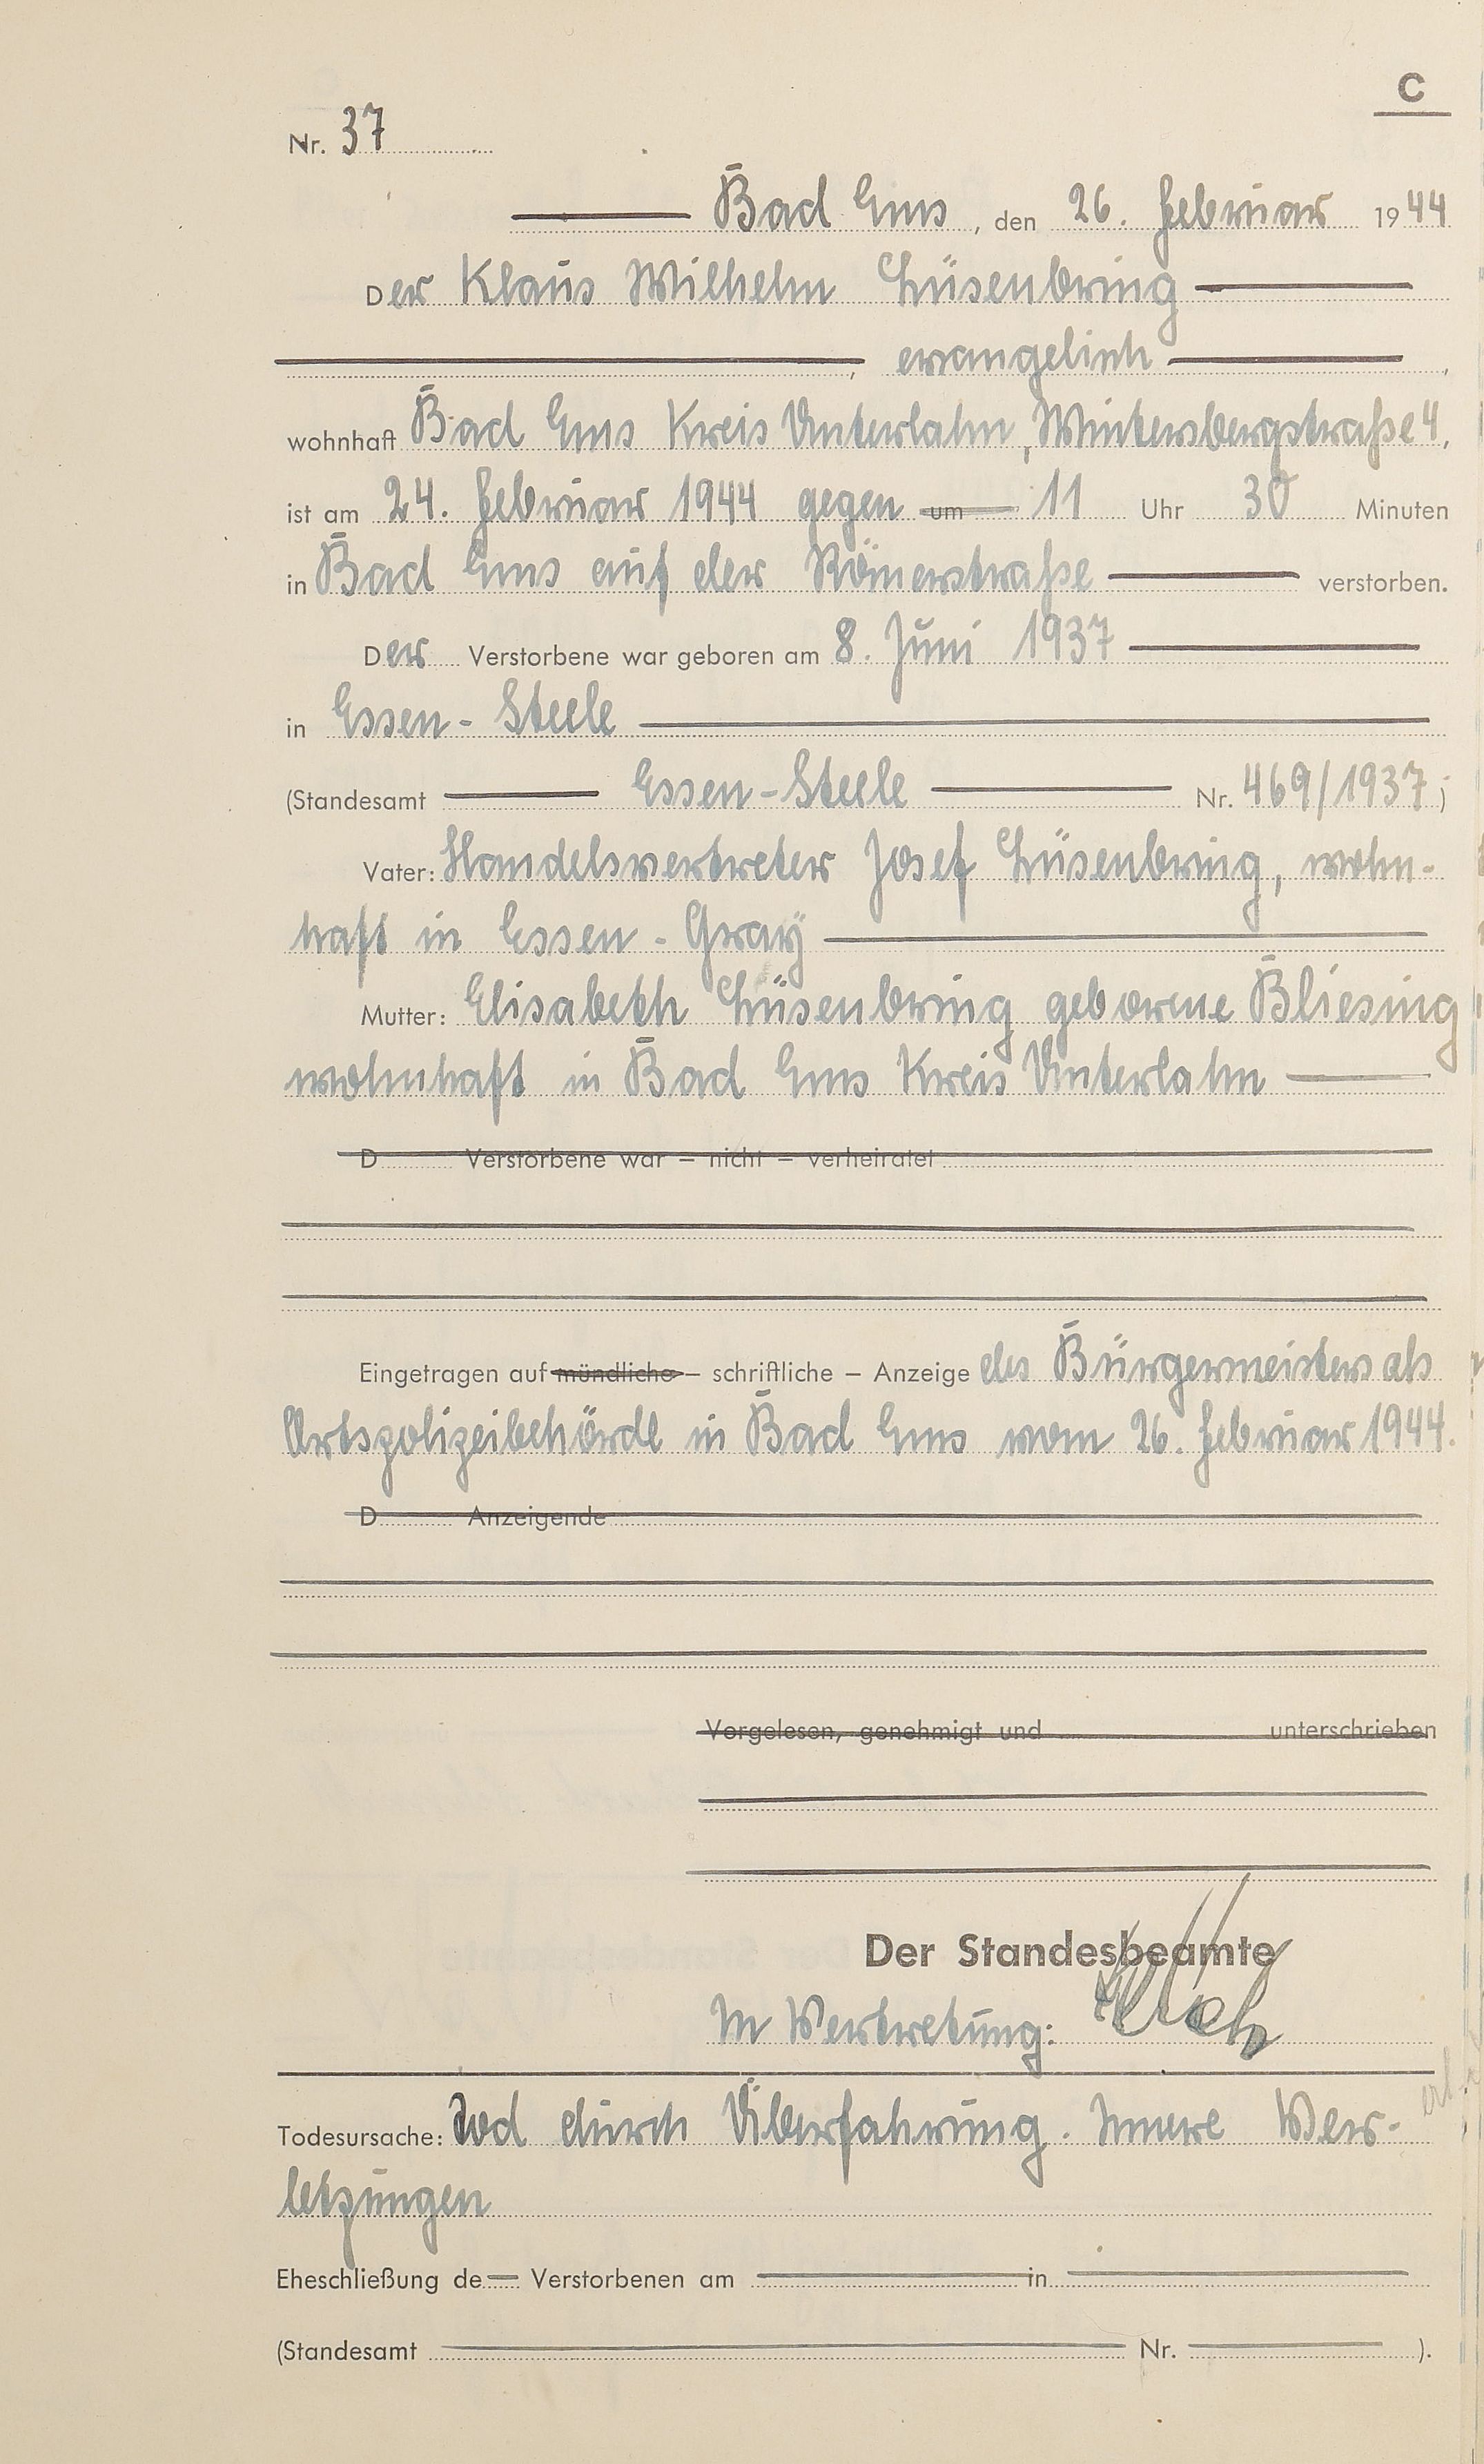 C
Nr. 37
Bad Ems, den 26. Februar 1944
Der Klaus Wilhelm Lüsenbring
, evangelisch,
wohnhaft Bad Ems Kreis Unterlahn, Wintersbergstraße 4,
ist am 24. Februar 1944 gegen um 11 Uhr 30 Minuten
in Bad Ems auf der Römerstraße verstorben.
Der Verstorbene war geboren am 8. Juni 1937
in Essen-Steele
(Standesamt Essen-Steele Nr. 469/1937)
Vater: Handelsvertreter Josef Lüsenbring, wohn-
haft in Essen-Gray
Mutter: Elisabeth Lüsenbring geborene Bliesing
wohnhaft in Bad Ems Kreis Unterlahn
D Verstorbene war – nicht – verheiratet
Eingetragen auf mündliche – schriftliche – Anzeige des Bürgermeisters als
Ortspolizeibehörde in Bad Ems vom 26. Februar 1944.
D Anzeigende
Vorgelesen, genehmigt und unterschrieben
Der Standesbeamte
In Vertretung:
Todesursache: Tod durch Überfahrung. Innere Ver-
letzungen
Eheschließung de Verstorbenen am in
(Standesamt Nr. ).